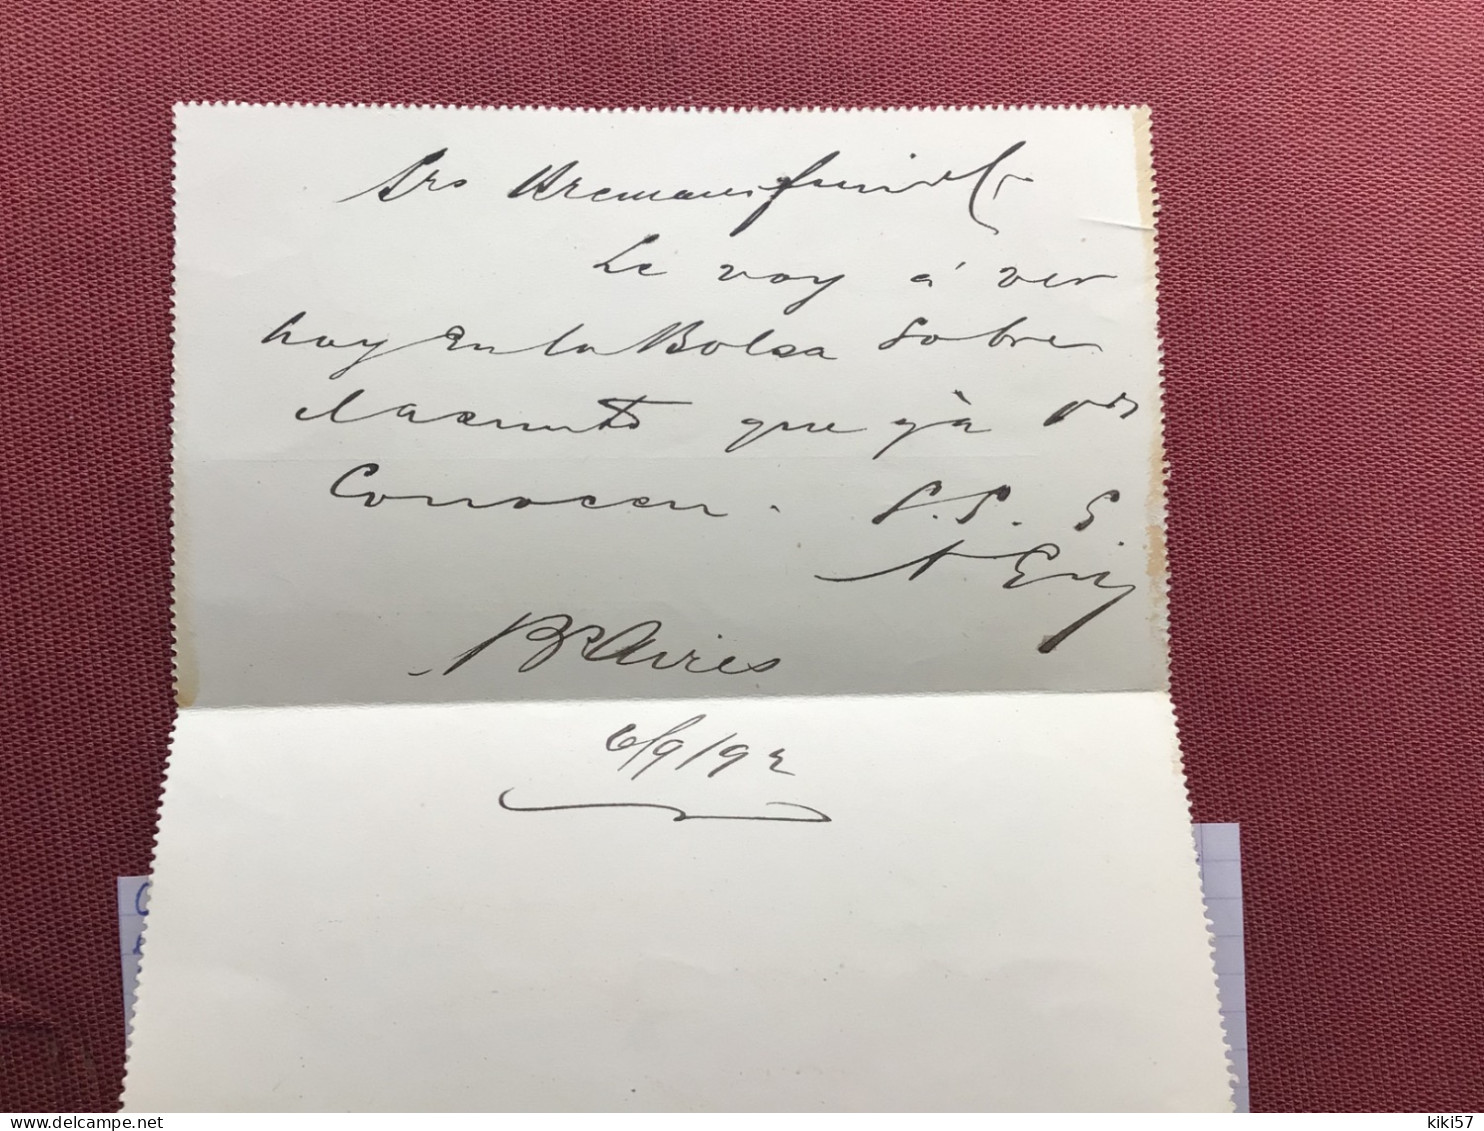 Srs
Le voy á ver
hoy en la Bolsa sobre
el asunto que yà Vds
Conocen. S. S. S.
Bs Aires
6/9/92
kiki57
delcampe.net